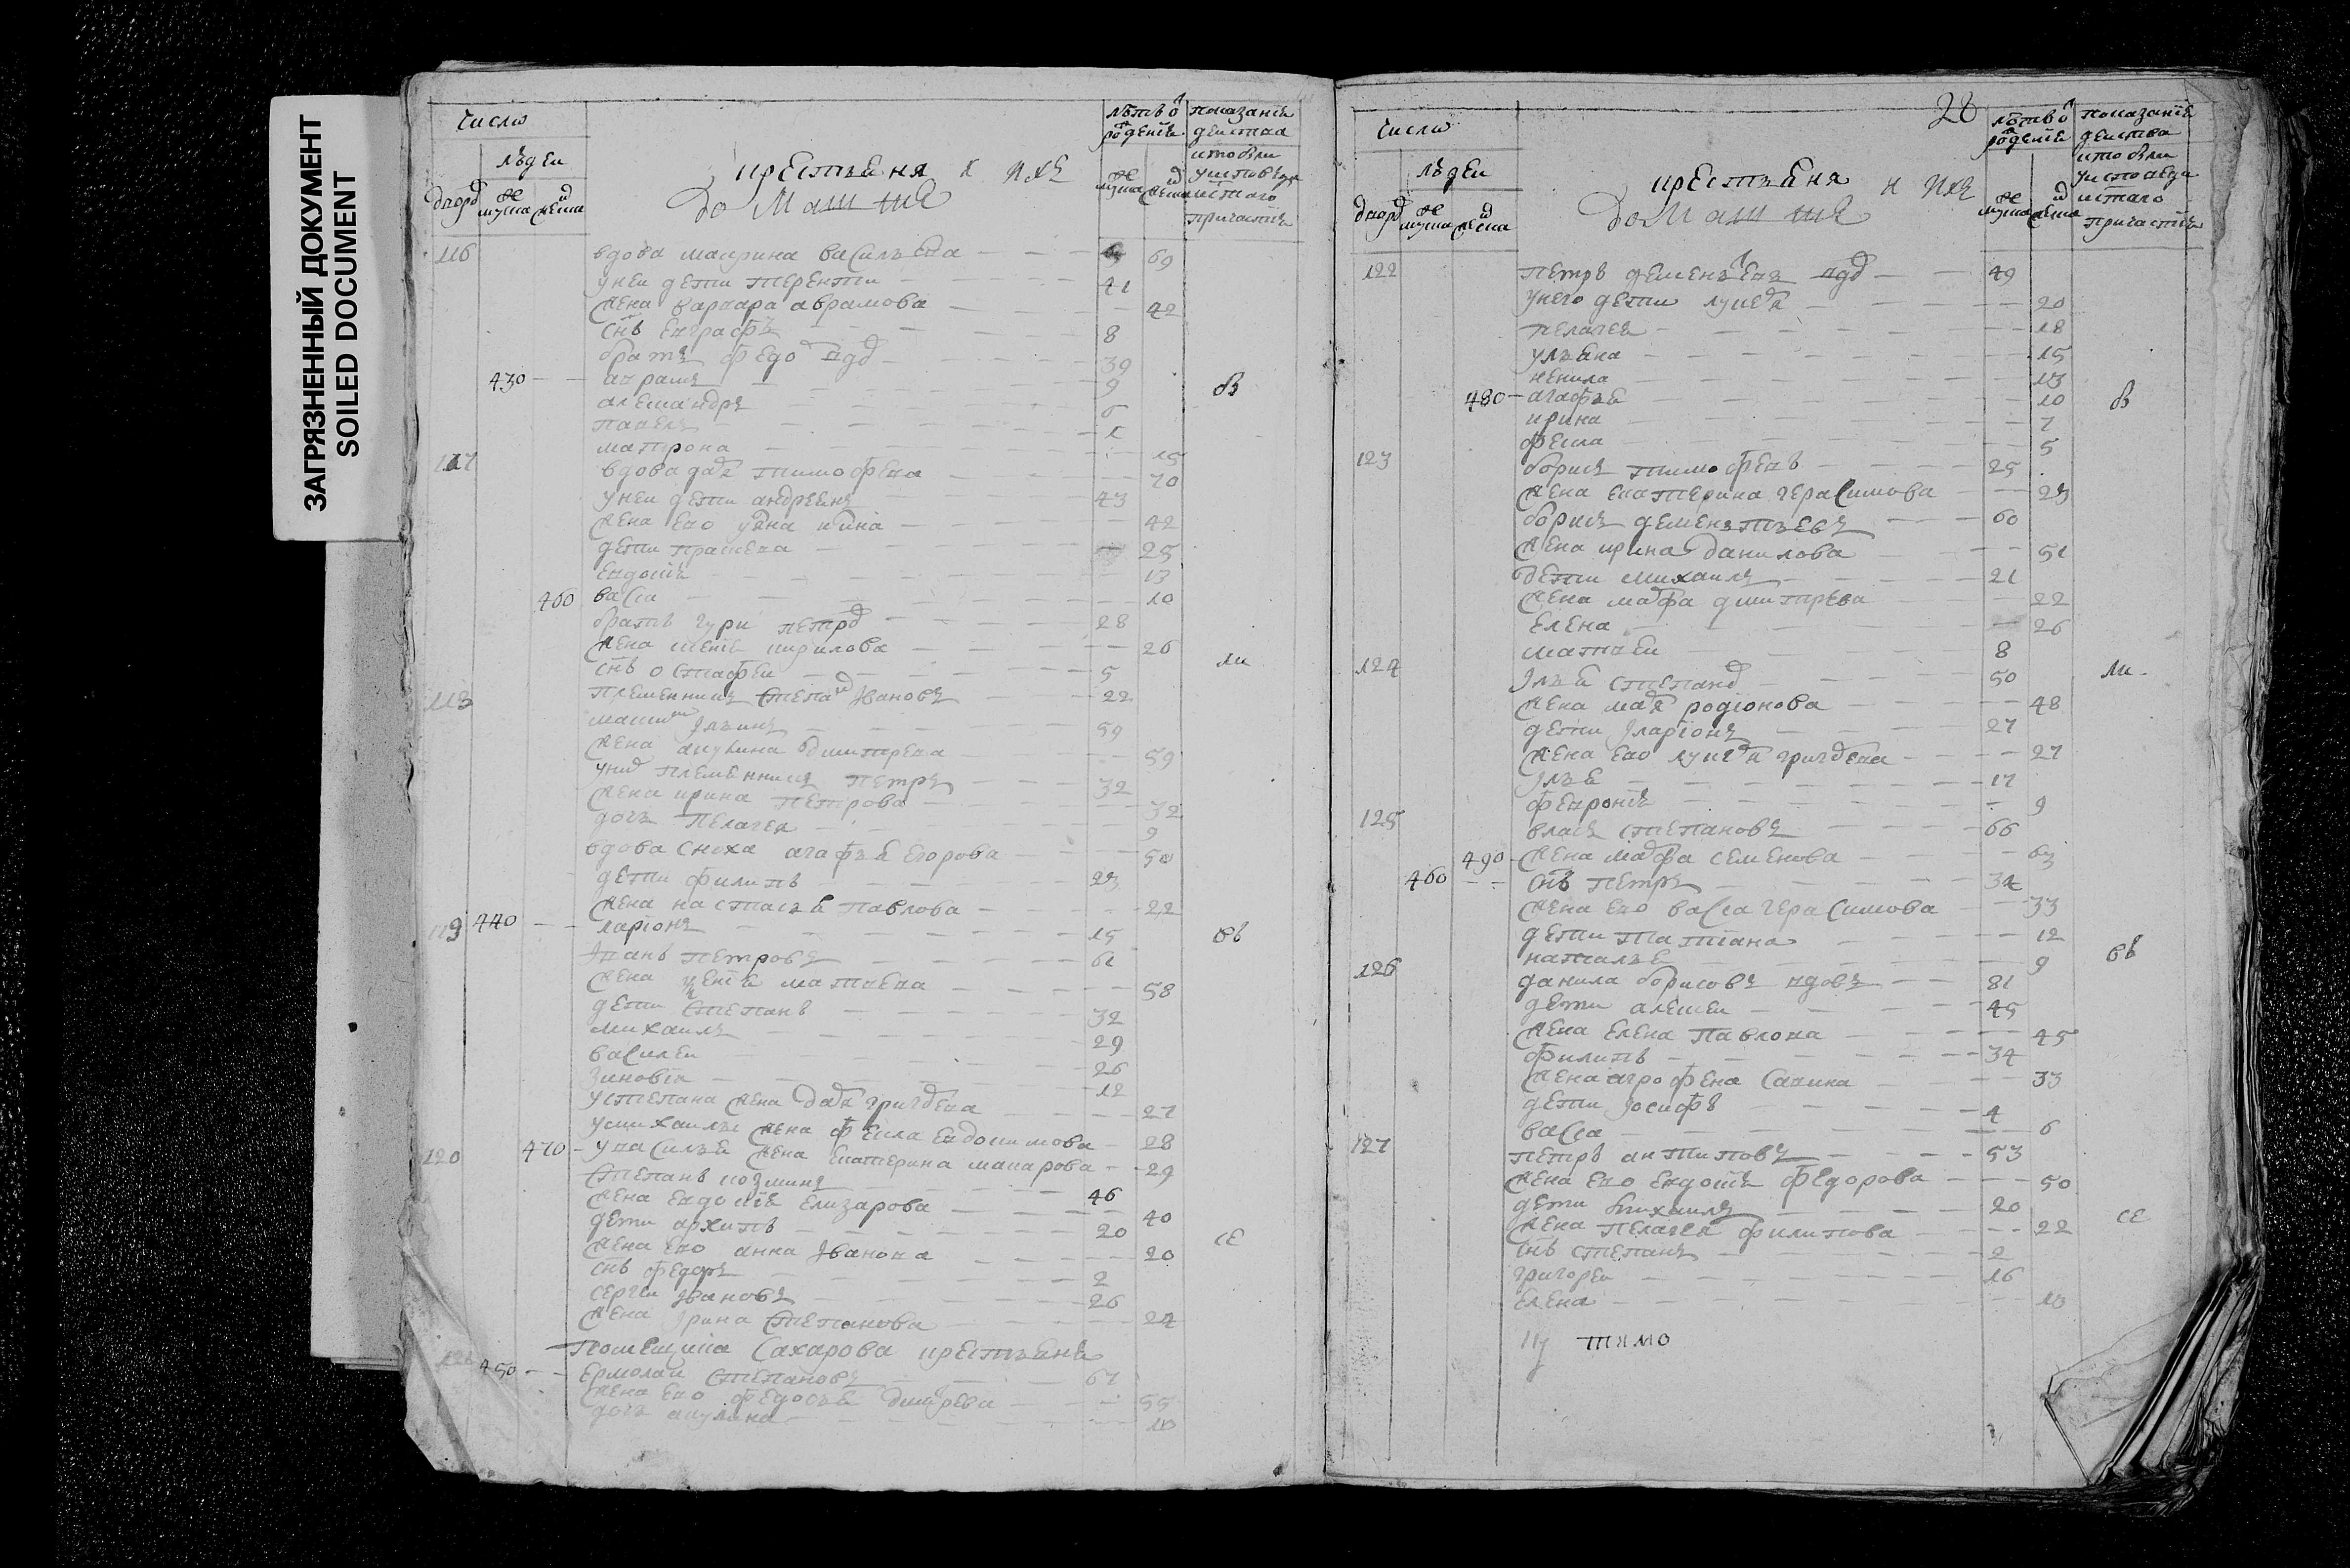 ЗАГРЯЗНЕННЫЙ ДОКУМЕНТ
SOILED DOCUMENT
Число
людеи
дворов мужеска женска
крестьяня и ихъ
домашние
лѣтъ от рождения
мужеска женска
показание действа кто был у исповеди и святаго причастия
116 вдова марина василева 69
у неи дети терентии 41
жена варвара аврамова 42
снъ евграфъ 8
братъ федо вдов 39
430 аврамъ 9
александръ 6
павелъ 1
матрона 15
117 вдова даря тимофеева 70
у неи дети андреянъ 43
жена ево 42
дети прасковя 25
евдокия 13
460 васса 10
братъ гури петров 28
жена кирилова 26
снъ остафеи 5
118 племенникъ степан Ивановъ 22
Ильинъ 59
жена акулина дмитрева 59
у них племенникъ петръ 32
жена ирина петрова 32
дочь пелагея 9
вдова сноха агафья егорова 50
дети филипъ 23
жена настасья павлова 22
119 440 ларионъ 15
Иванъ петровъ 61
жена матвева 58
дети степанъ 32
михаилъ 29
василеи 26
зиновия 12
у степана жена даря григорева 27
у михаилы жена фекла евдокимова 28
120 470 у василья жена екатерина макарова 29
степанъ козминъ 46
жена евдокия елизарова 40
дети архипъ 20
жена ево анна Иванова 20
снъ федоръ 2
сергеи Ивановъ 26
жена Ирина степанова 24
помещика Сахарова крестьяня
121 450 ермолаи степановъ 67
жена ево федосья дмитрева 55
дочь акулина 10
въ
ли
овъ
се
28
Число
людеи
дворов мужеска женска
крестьяня и ихъ
домашние
лѣтъ от рождения
мужеска женска
показание действа кто был у исповеди и святаго причастия
122 петръ деменьтевъ вдов 49
у него дети лукеря 20
пелагея 18
ульяна 15
ненила 13
480 агафья 10
ирина 7
фекла 5
123 борисъ тимофеевъ 25
жена екатерина герасимова 23
борисъ деменьтьевъ 60
жена ирина данилова 51
дети михаилъ 21
жена марфа дмитрева 22
елена 26
матвеи 8
124 Илья степанов 50
жена маря родионова 48
дети Иларионъ 27
жена ево лукеря григорева 27
Илья 17
феврония 9
125 власъ степановъ 66
490 жена марфа семенова 63
460 снъ петръ 34
жена ево васса герасимова 33
дети татиана 12
наталья 9
126 данила борисовъ вдовъ 81
дети алексеи 45
жена елена павлова 45
филипъ 34
жена агрофена савина 33
дети Иосифъ 4
васса 6
127 петръ антиповъ 53
жена ево евдокия федорова 50
дети михаилъ 20
жена пелагея филипова 22
снъ степанъ 2
григореи 16
елена 13
въ
ли
овъ
се